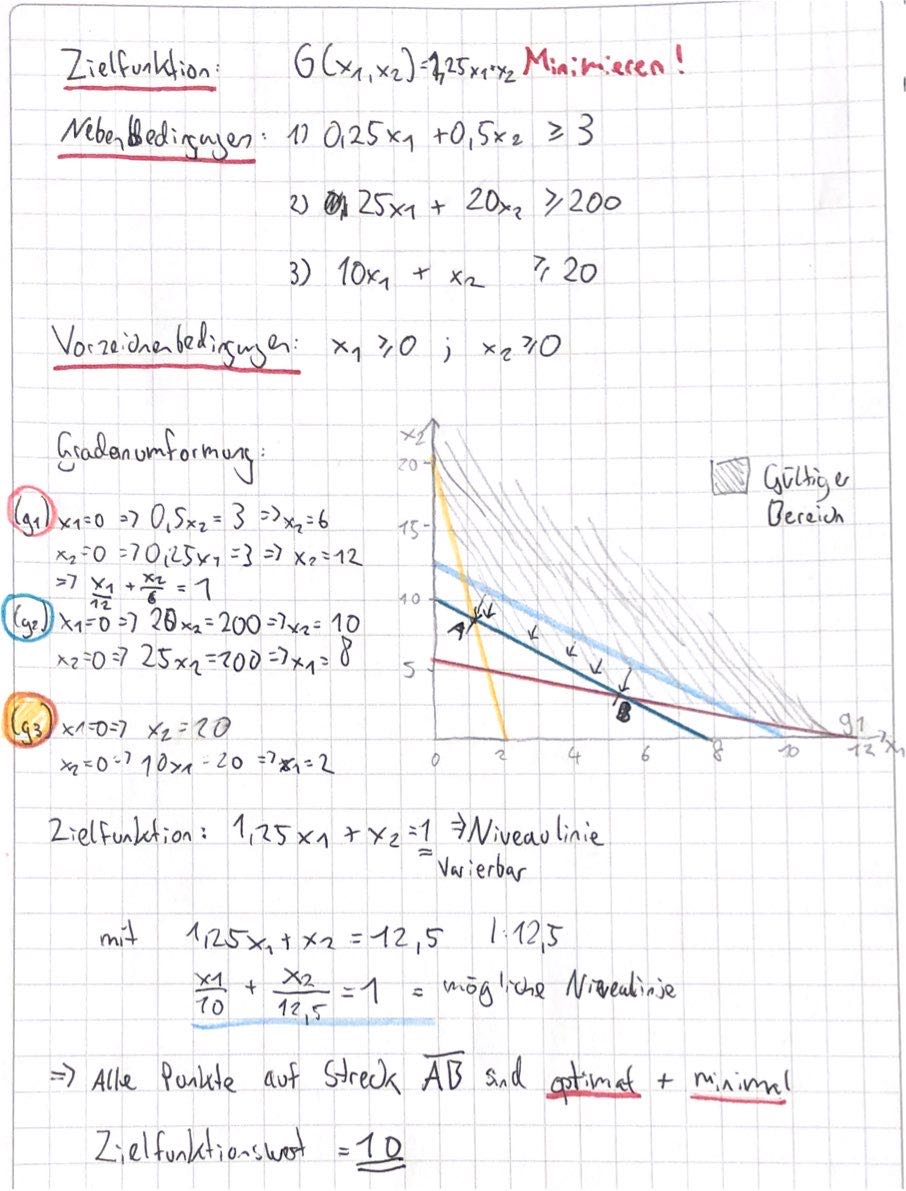 Zielfunktion: G(x1,x2)=1,25x1+x2 Minimieren!
Nebenbedingungen: 1) 0,25x1 +0,5x2 ≥ 3
2) 25x1 + 20x2 ≥ 200
3) 10x1 + x2 ≥ 20
Vorzeichenbedingungen: x1 ≥ 0 ; x2 ≥ 0
Gradenumformung:
(g1) x1=0 => 0,5x2 = 3 => x2=6
x2=0 => 0,25x1 =3 => x2=12
=> x1/12 + x2/6 = 1
(g2) x1=0 => 20x2=200 => x2= 10
x2=0 => 25x2=200 => x1= 8
(g3) x1=0 => x2=20
x2=0 => 10x1=20 => x1=2
x2
20
15
10
5
0 2 4 6 8 10 12 x1
A
B
g1
Gültiger
Bereich
Zielfunktion: 1,25x1 + x2 =1 => Niveaulinie
Varierbar
mit 1,25x1 + x2 = 12,5 |:12,5
x1/10 + x2/12,5 = 1 = mögliche Niveaulinie
=> Alle Punkte auf Streck AB sind optimal + minimal
Zielfunktionswert = 10